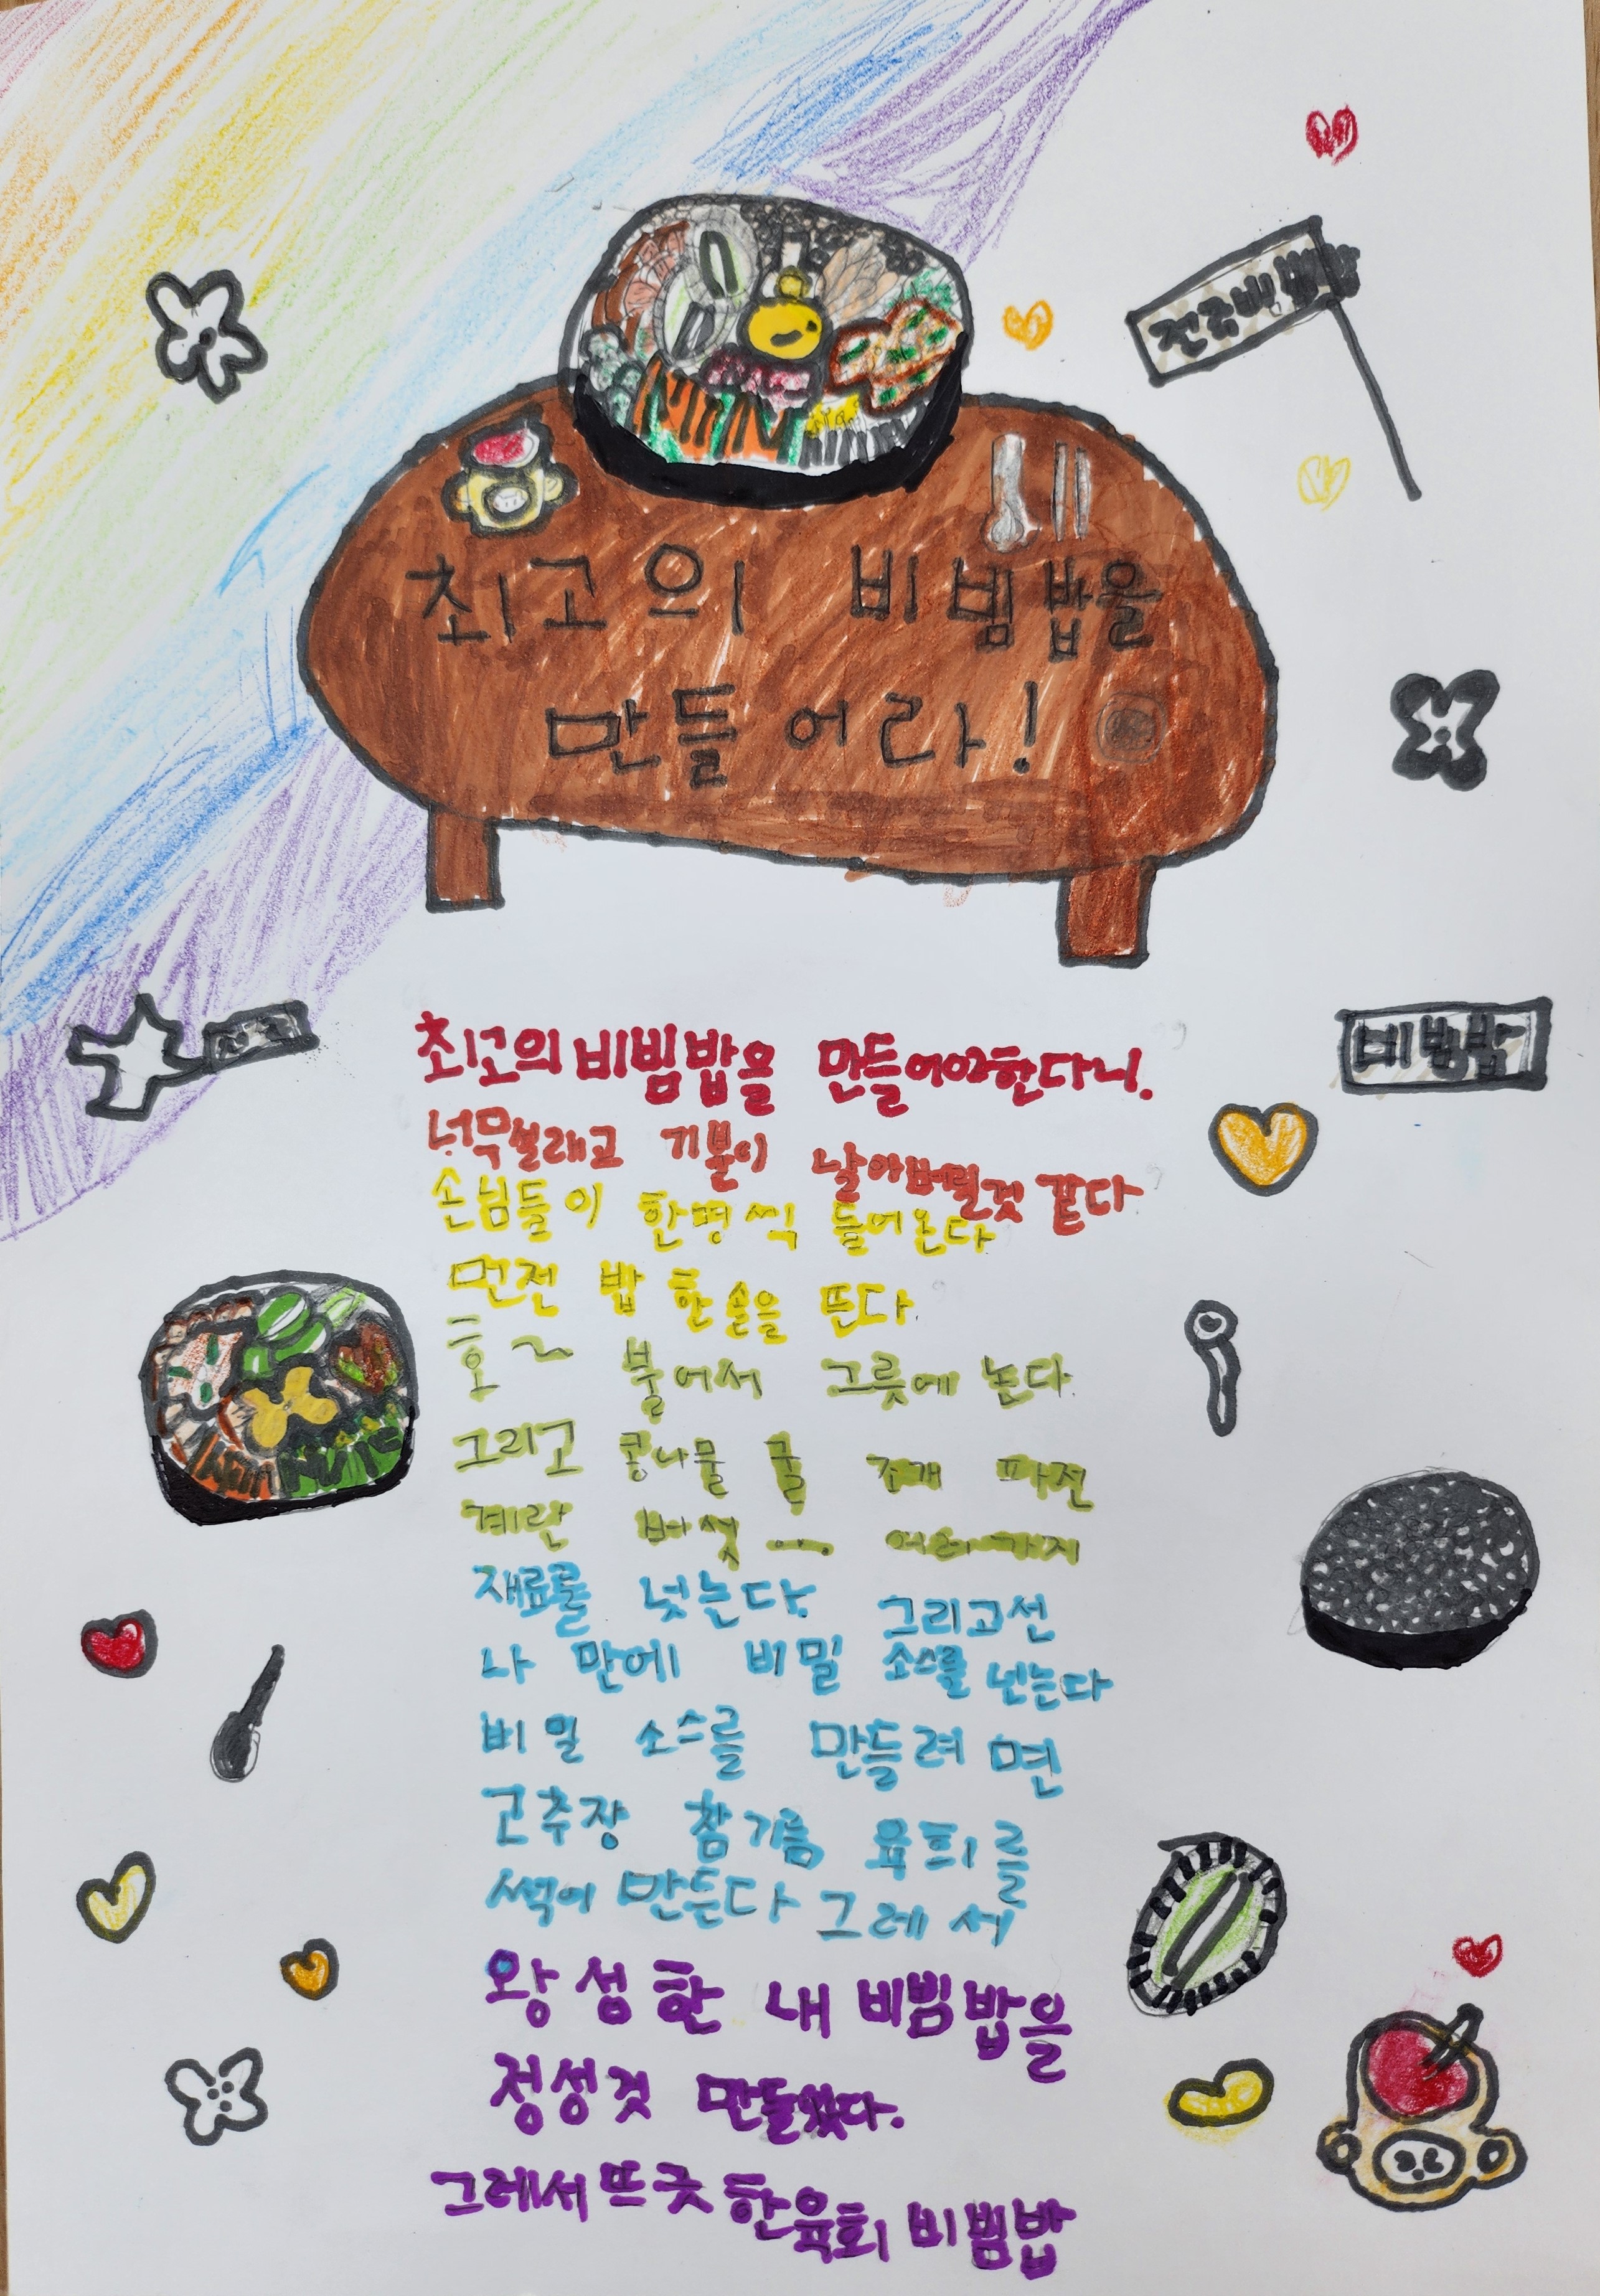 전주비빔밥
최고의 비빔밥을
만들어라!
최고의 비빔밥을 만들어야한다니.
너무설래고 기분이 날아버릴것 같다
손님들이 한명씩 들어온다
먼전 밥 한 솔을 뜬다
호~ 불어서 그릇에 논다.
그리고 콩나물 굴 조개 파전
계란 버섯.... 여러가지
재료를 넛는다. 그리고선
나 만에 비밀 소스를 넌는다
비밀 소스를 만들려면
고추장 참기름 육회를
썩어 만든다 그레서
왕성한 내 비빔밥을
정성것 만들었다.
그레서 뜨긋한육회 비빔밥
비빔밥